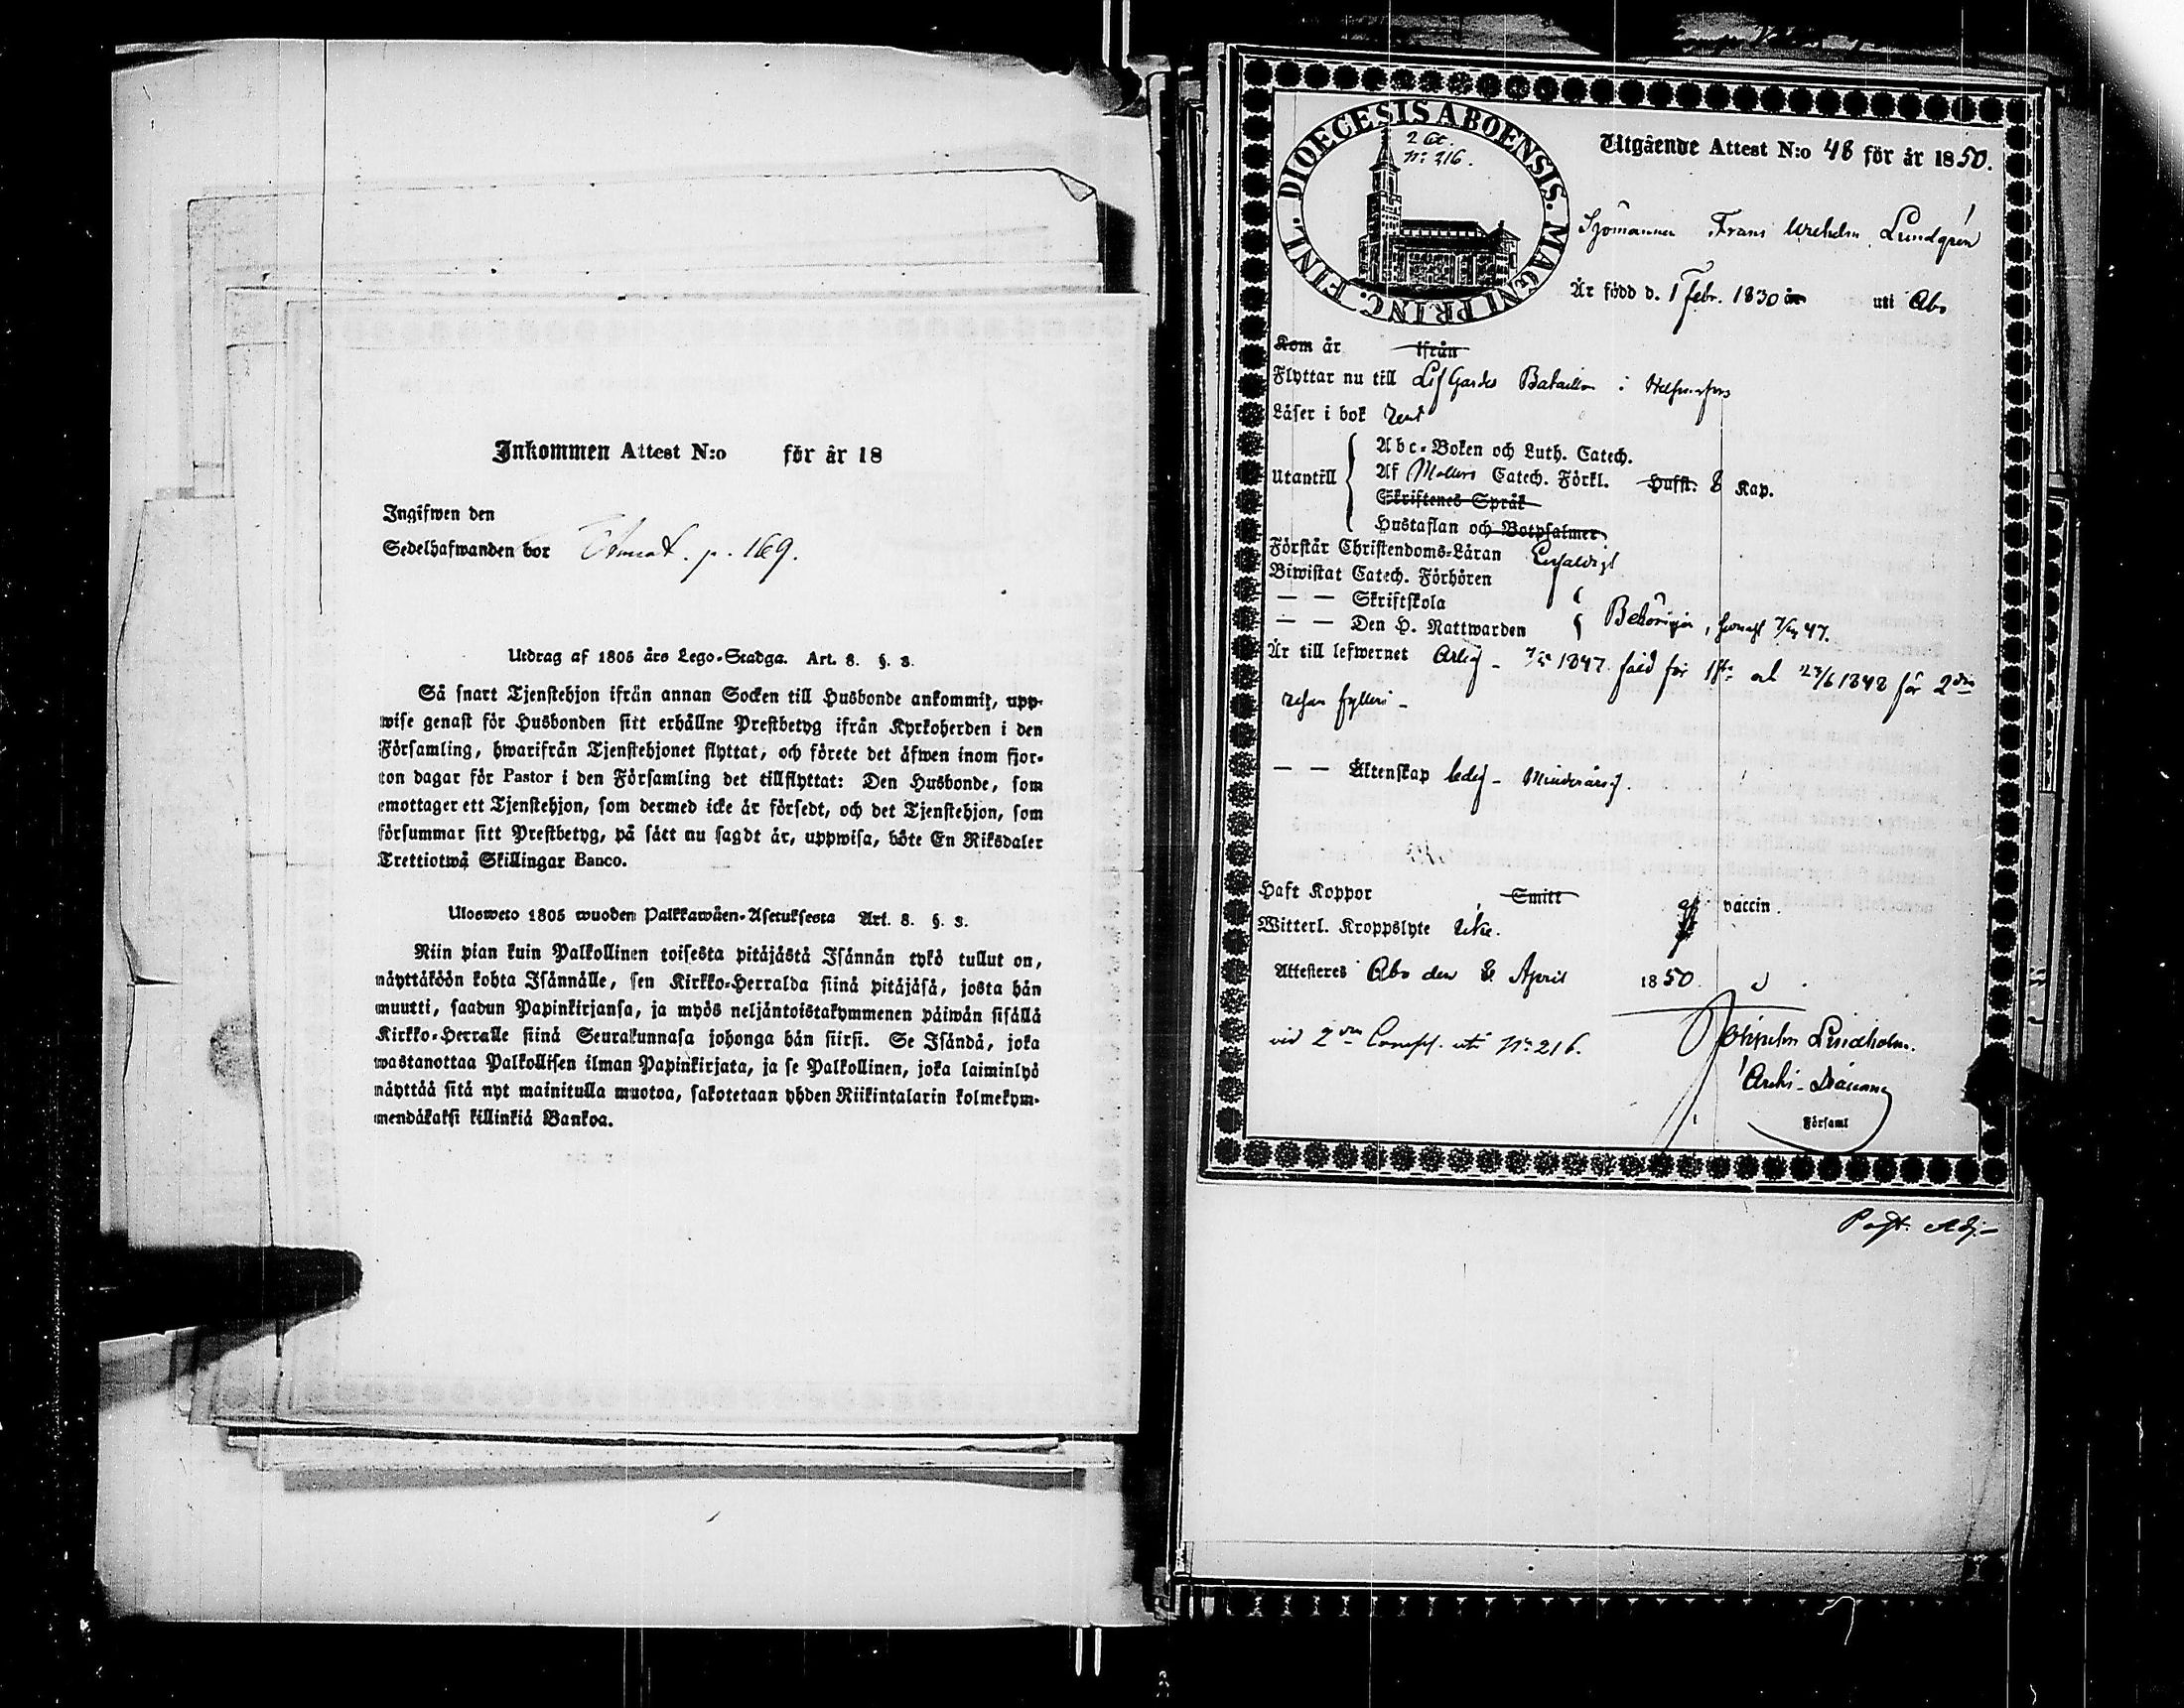 Inkommen Attest N:o för år 18
Ingifwen den
Sedelhafwanden bor p. 169.
Utdrag af 1805 års Lego-Stadga. Art. 8. §. 3.
Så snart Tjenstehjon ifrån annan Socken till Husbonde ankommit, upp-
wise genast för Husbonden sitt erhållne Prestbetyg ifrån Kyrkoherden i den
Församling, hwarifrån Tjenstehjonet flyttat, och förete det äfwen inom fjor-
ton dagar för Pastor i den Församling det tillflyttat: Den Husbonde, som
emottager ett Tjenstehjon, som dermed icke är försedt, och det Tjenstehjon, som
försummar sitt Prestbetyg, på sätt nu sagdt är, uppwisa, böte En Riksdaler
Trettiotwå Skillingar Banco.
Ulosweto 1805 wuoden Palkkawäen-Asetuksesta Art. 8. §. 3.
Niin pian kuin Palkollinen toisesta pitäjästä Isännän tykö tullut on,
näyttäköön kohta Isännälle, sen Kirkko-Herralda siinä pitäjäsä, josta hän
muutti, saadun Papinkirjansa, ja myös neljäntoistakymmenen päiwän sisällä
Kirkko-Herralle siinä Seurakunnasa johonga hän siirsi. Se Isändä, joka
wastanottaa Palkollisen ilman Papinkirjata, ja se Palkollinen, joka laiminlyö
näyttää sitä nyt mainitulla muotoa, sakotetaan yhden Riikintalarin kolmekym-
mendäkaksi killinkiä Bankoa.
DIOECESIS ABOENSIS. MAGNI PRINC. FINL.
2 Qt.
N: 216.
Utgående Attest N:o 48 för år 1850.
Sjömannen Frans Wilhelm Lundgrén
Är född d. 1 Febr. 1830 år uti Åbo
Kom år ifrån
Flyttar nu till Lif Gardes Bataillon i Helsingfors
Läser i bok rent
Utantill
Abc-Boken och Luth. Catech.
Af Möllers Catech. Förkl. Hufst. 8 Kap.
Skriftenes Språk
Hustaflan och Botpsalmer
Förstår Christendoms-Läran Enfaldigt
Biwistat Catech. Förhören
— — Skriftskola
— — Den H. Nattwarden Behörigen, 47.
Är till lefwernet Ärlig - 1847 för 1sta och 27/6 1848 för 2dra
resan fylleri -
— — Äktenskap ledig - Minderårig.
Haft Koppor Smitt vaccin.
Witterl. Kroppslyte icke.
Attesteres Åbo den 8 April 1850.
vid 2dra Comp. N: 216.
Lindholm.
Archi-Diacanus
Församl
Past. Adj.